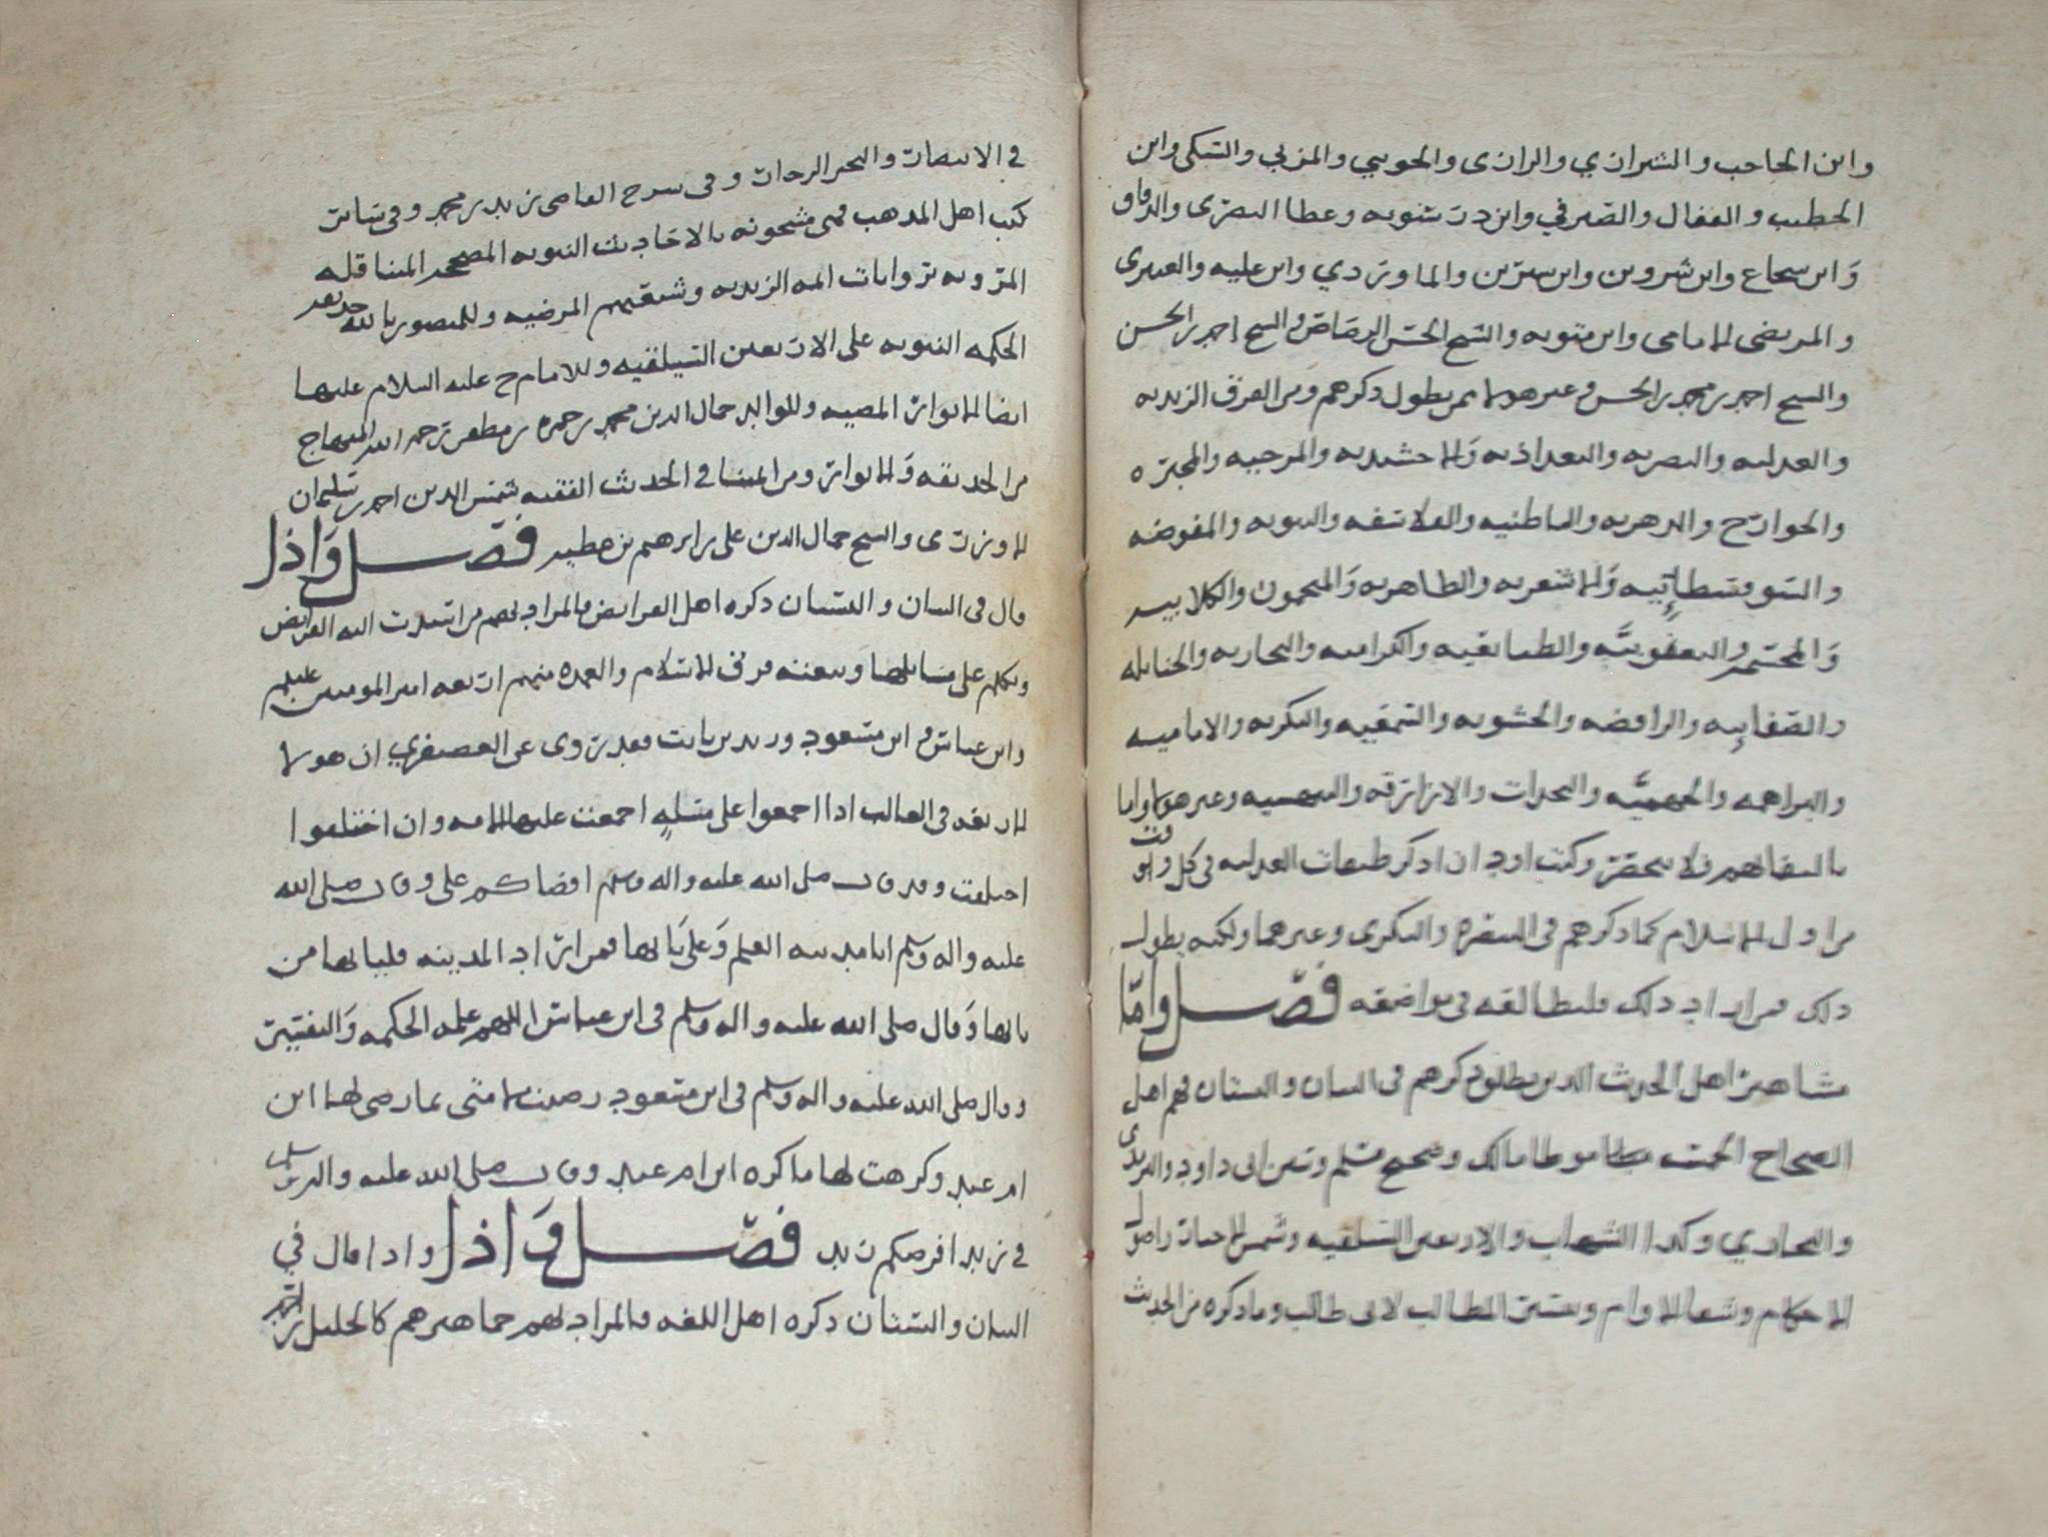 وابن الحاجب والشيرازي والرازي والجويني والمزني والسبكي وابن
الخطيب والقفال والصيرفي وابن درستويه وعطا البصري والدقاق
وابن شجاع وابن شروين وابن سيرين والماوردي وابن عليه والعنبري
والمرتضى الامامي وابن متويه والشيخ الحسن الرصاص والشيخ احمد بن الحسن
والشيخ احمد بن محمد بن الحسن وغير هولا ممن يطول ذكرهم ومن الفرق الزيديه
والعدليه والبصريه والبغداذيه والاخشيديه والمرجيه والمجبره
والخوارج والدهريه والباطنيه والفلاسفه والثنويه والمفوضه
والسوفسطائيه والاشعريه والظاهريه والمنجمون والكلابيه
والمجسمه واليعقوبيه والطبايعيه والكراميه والنجاريه والحنابله
والصفاتيه والرافضه والحشويه والبكريه والاماميه
والبراهمه والجهميه والنجدات والازارقه والبيهسيه وغير هولا واما
بالبقا لهم فلا ينحصر وكنت اود ان اذكر طبقات العدليه في كل وقت
من اول الاسلام كما ذكرهم في السفره والبكري وغيرهما ولكنه يطول
ذلك فمن اراد ذلك فليطالعه في مواضعه فصل واما
مشاهير اهل الحديث الذين يطلق ذكرهم في البيان والبستان فهم اهل
الصحاح الخمسه موطا مالك وصحيح مسلم وسنن ابي داود والترمذي
والبخاري وكذا الشهاب والاربعين السيلقيه وشمس الاخبار واصول
الاحكام وشفا الاوام وتيسير المطالب لابي طالب وما ذكره من الحديث
في الانتصار والبحر الزخار وفي شرح القاضي زيد بن محمد وفي سائر
كتب اهل المذهب فهي مشحونه بالاحاديث النبويه المصححه المتناقله
المرويه بروايات ائمه الزيديه وشيعتهم المرضيه وللمنصور بالله حديقه
الحكمه النبويه على الاربعين السيلقيه وللامام ح عليه السلام عليها
ايضا الانوار المضيه وللوالد جمال الدين محمد بن حمزه بن مظفر رحمه الله المنهاج
من الحديقه والانوار ومن اثمتنا في الحديث الفقيه شمس الدين احمد بن سليمان
الاوزري والشيخ جمال الدين علي بن ابرهيم بن عطيه فصل واذا
قال في البيان والبستان ذكره اهل الفرايض فالمراد بهم من اسندت اليه الفرايض
وتكلم على مسايلها وتبعته فرق الاسلام والعمده منهم اربعه امير المومنين عليلم
وابن عباس وابن مسعود وزيد بن ثابت فقد روى عن العصيفري ان هولا
الاربعه في الغالب اذا اجمعوا على مسئله اجمعت عليها الامه وان اختلفوا
اختلفت وقد قال صلى الله عليه واله وسلم اقضاكم علي وقال صلى الله
عليه واله وسلم انا مدينه العلم وعلي بابها فمن اراد المدينه فليباتها من
بابها وقال صلى الله عليه واله وسلم في ابن عباس اللهم علمه الحكمه والتفسير
وقال صلى الله عليه واله وسلم في ابن مسعود رضيت لامتي بما رضي لها ابن
ام عبد وكرهت لها ما كره ابن ام عبد وقال صلى الله عليه واله وسلم
في زيد افرضكم زيد فصل واذا واذا قال في
البيان والبستان ذكره اهل اللغه فالمراد بهم جماهيرهم كالخليل بن احمد